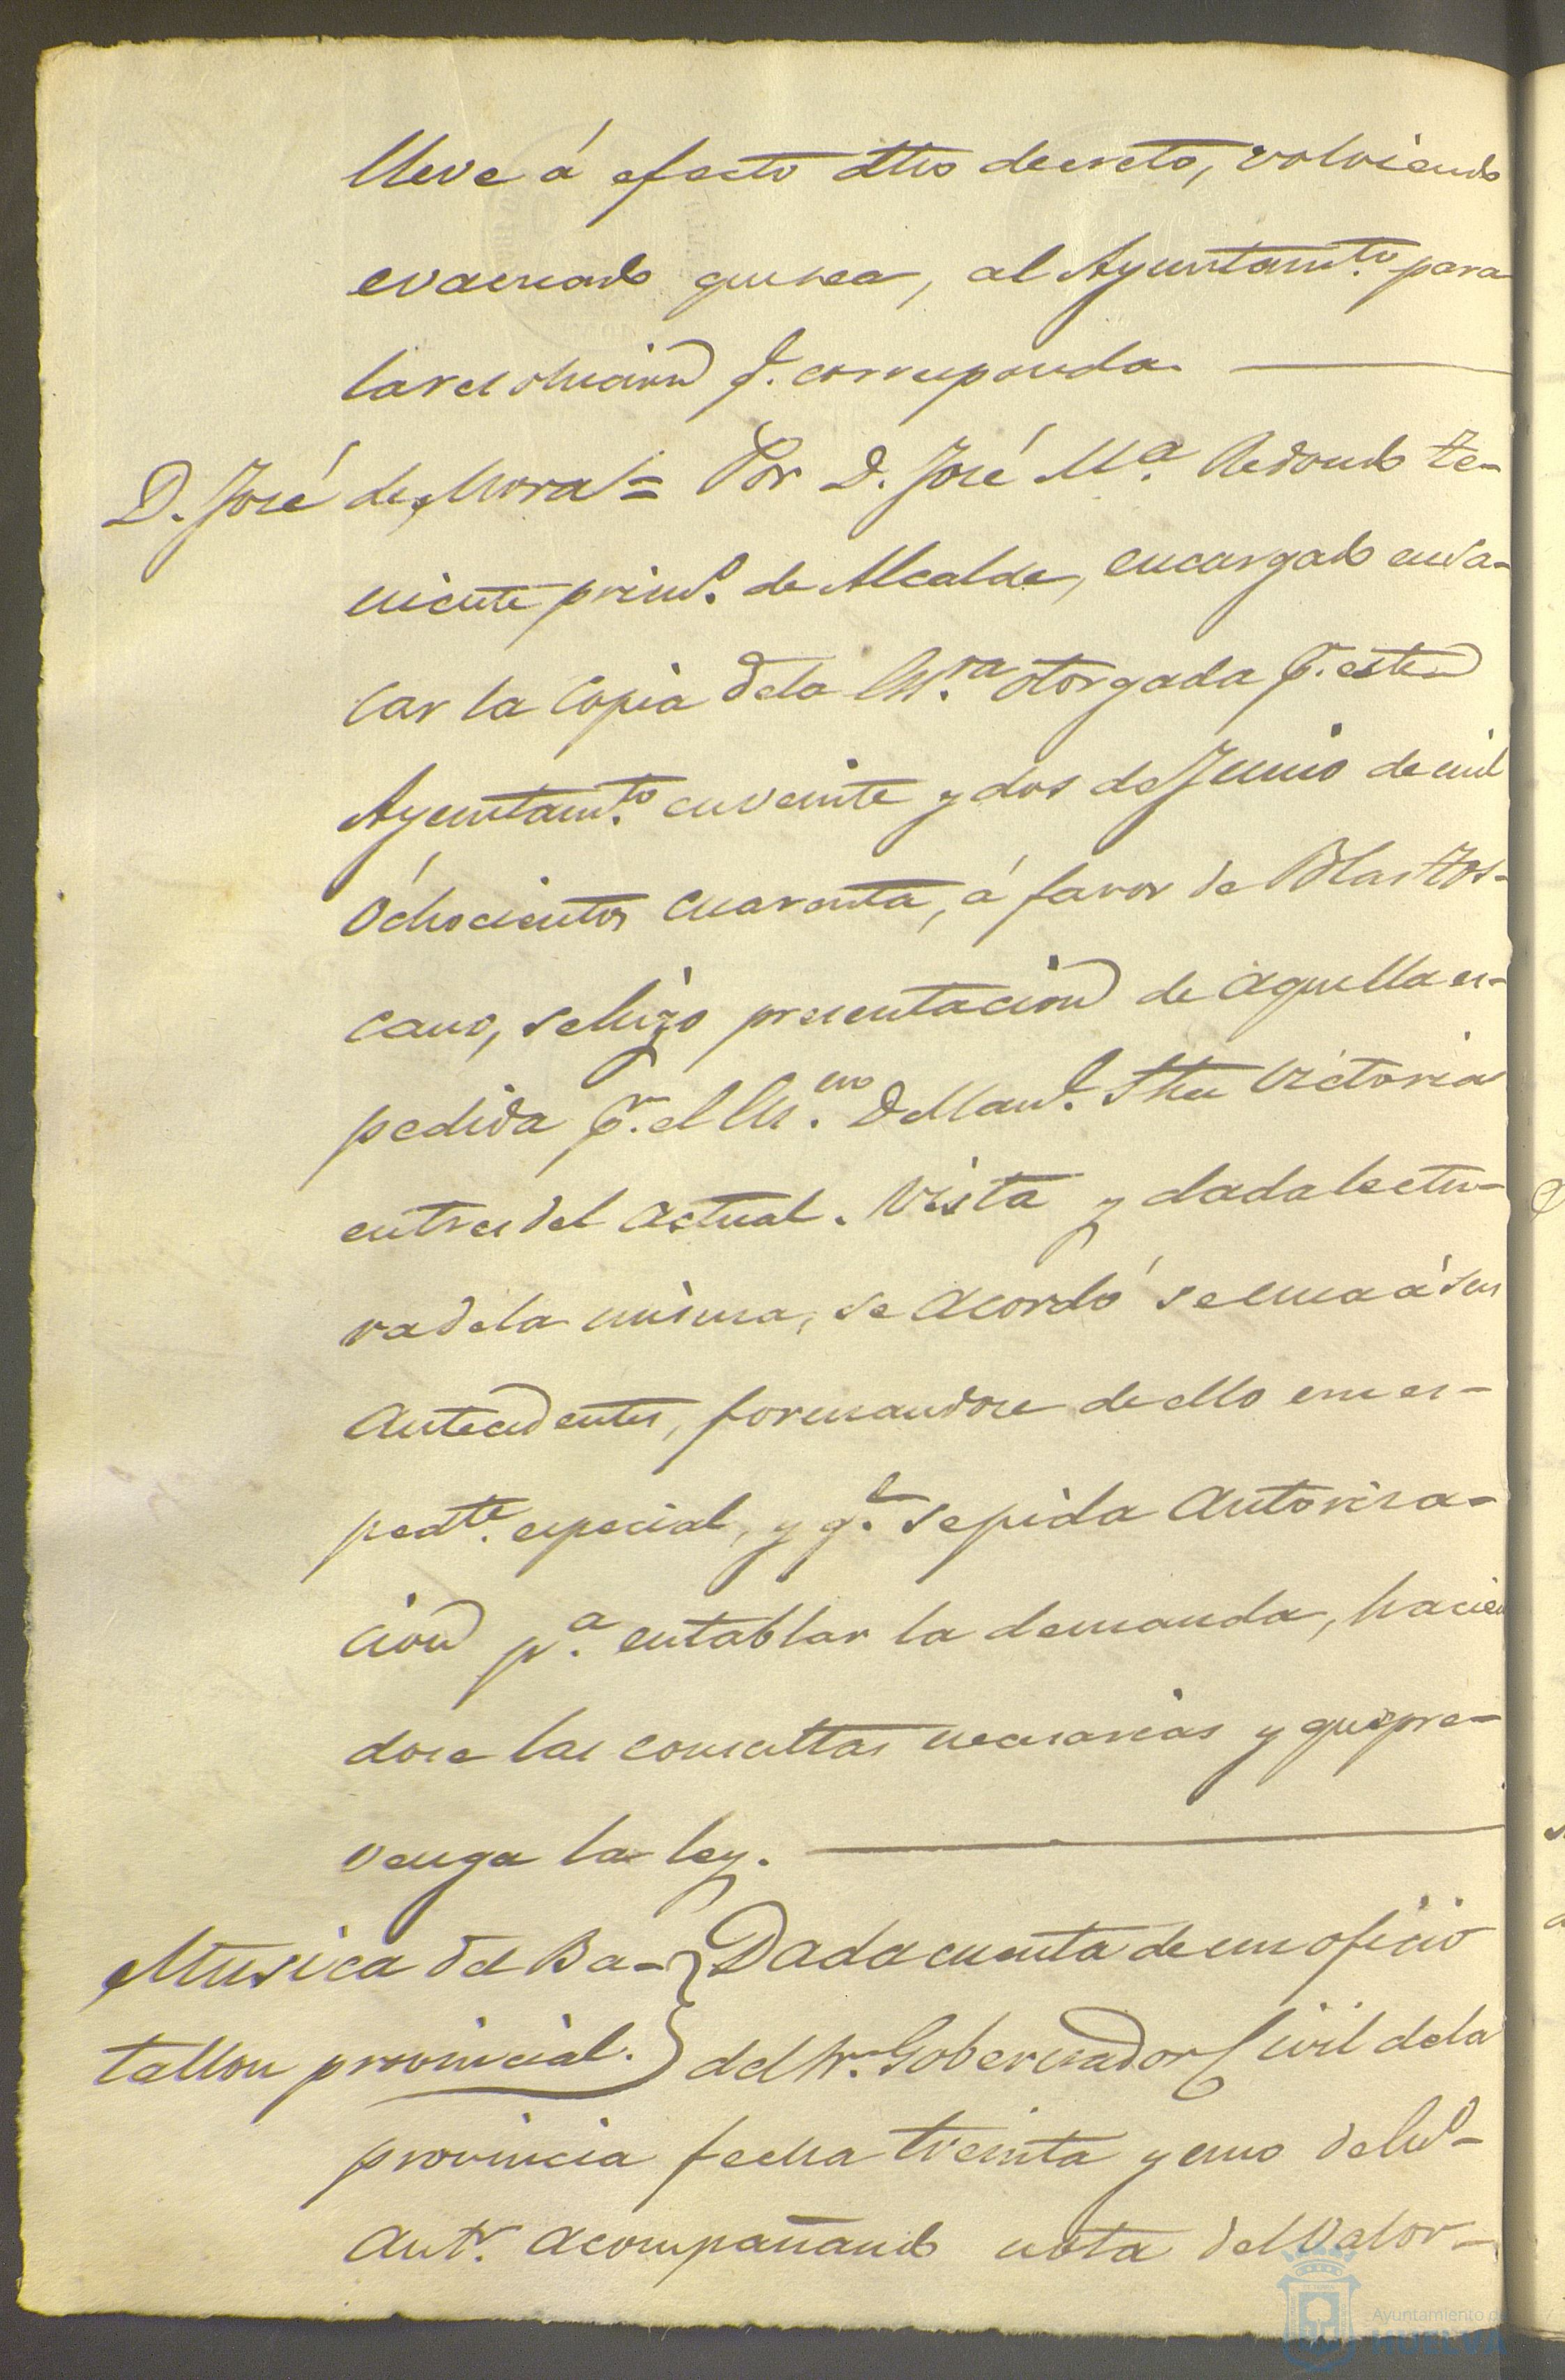 lleve á efecto dho decreto, volviendo
evacuado que sea, al Ayuntamto. para
la resolucion q. corresponda.
D. José de Mora = Por D. José Ma. Redondo te-
niente primo. de Alcalde, encargado en sa-
car la copia dela Esra. otorgada pr. este
Ayuntamto. en veinte y dos de Junio de mil
ochocientos cuarenta, á favor de Blas Tos-
cano, se hizo presentacion de aquella es-
pedida pr. el Esno. D Manl. Victoria
en tres del actual. Vista y dada lectu-
ra dela misma, se acordó se una á sus
antecedentes, formandose de ello un es-
pedte. especial, y qe. se pida autoriza-
cion pa. entablar la demanda, hacien
dose las consultas necesarias y que pre-
venga la ley.
Musica del Ba- } Dada cuenta de un oficio
tallon provincial. } del Sr. Gobernador Civil dela
provincia fecha treinta y uno del
antr. acompañando nota del valor
Ayuntamiento de
HUELVA